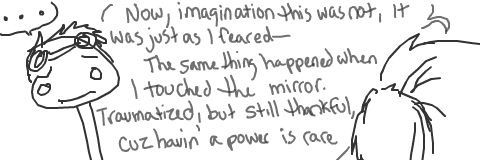 ...
Now, imagination this was not, It
was just as I feared—
The same thing happened when
I touched the mirror.
Traumatized, but still thankful,
cuz havin' a power is rare